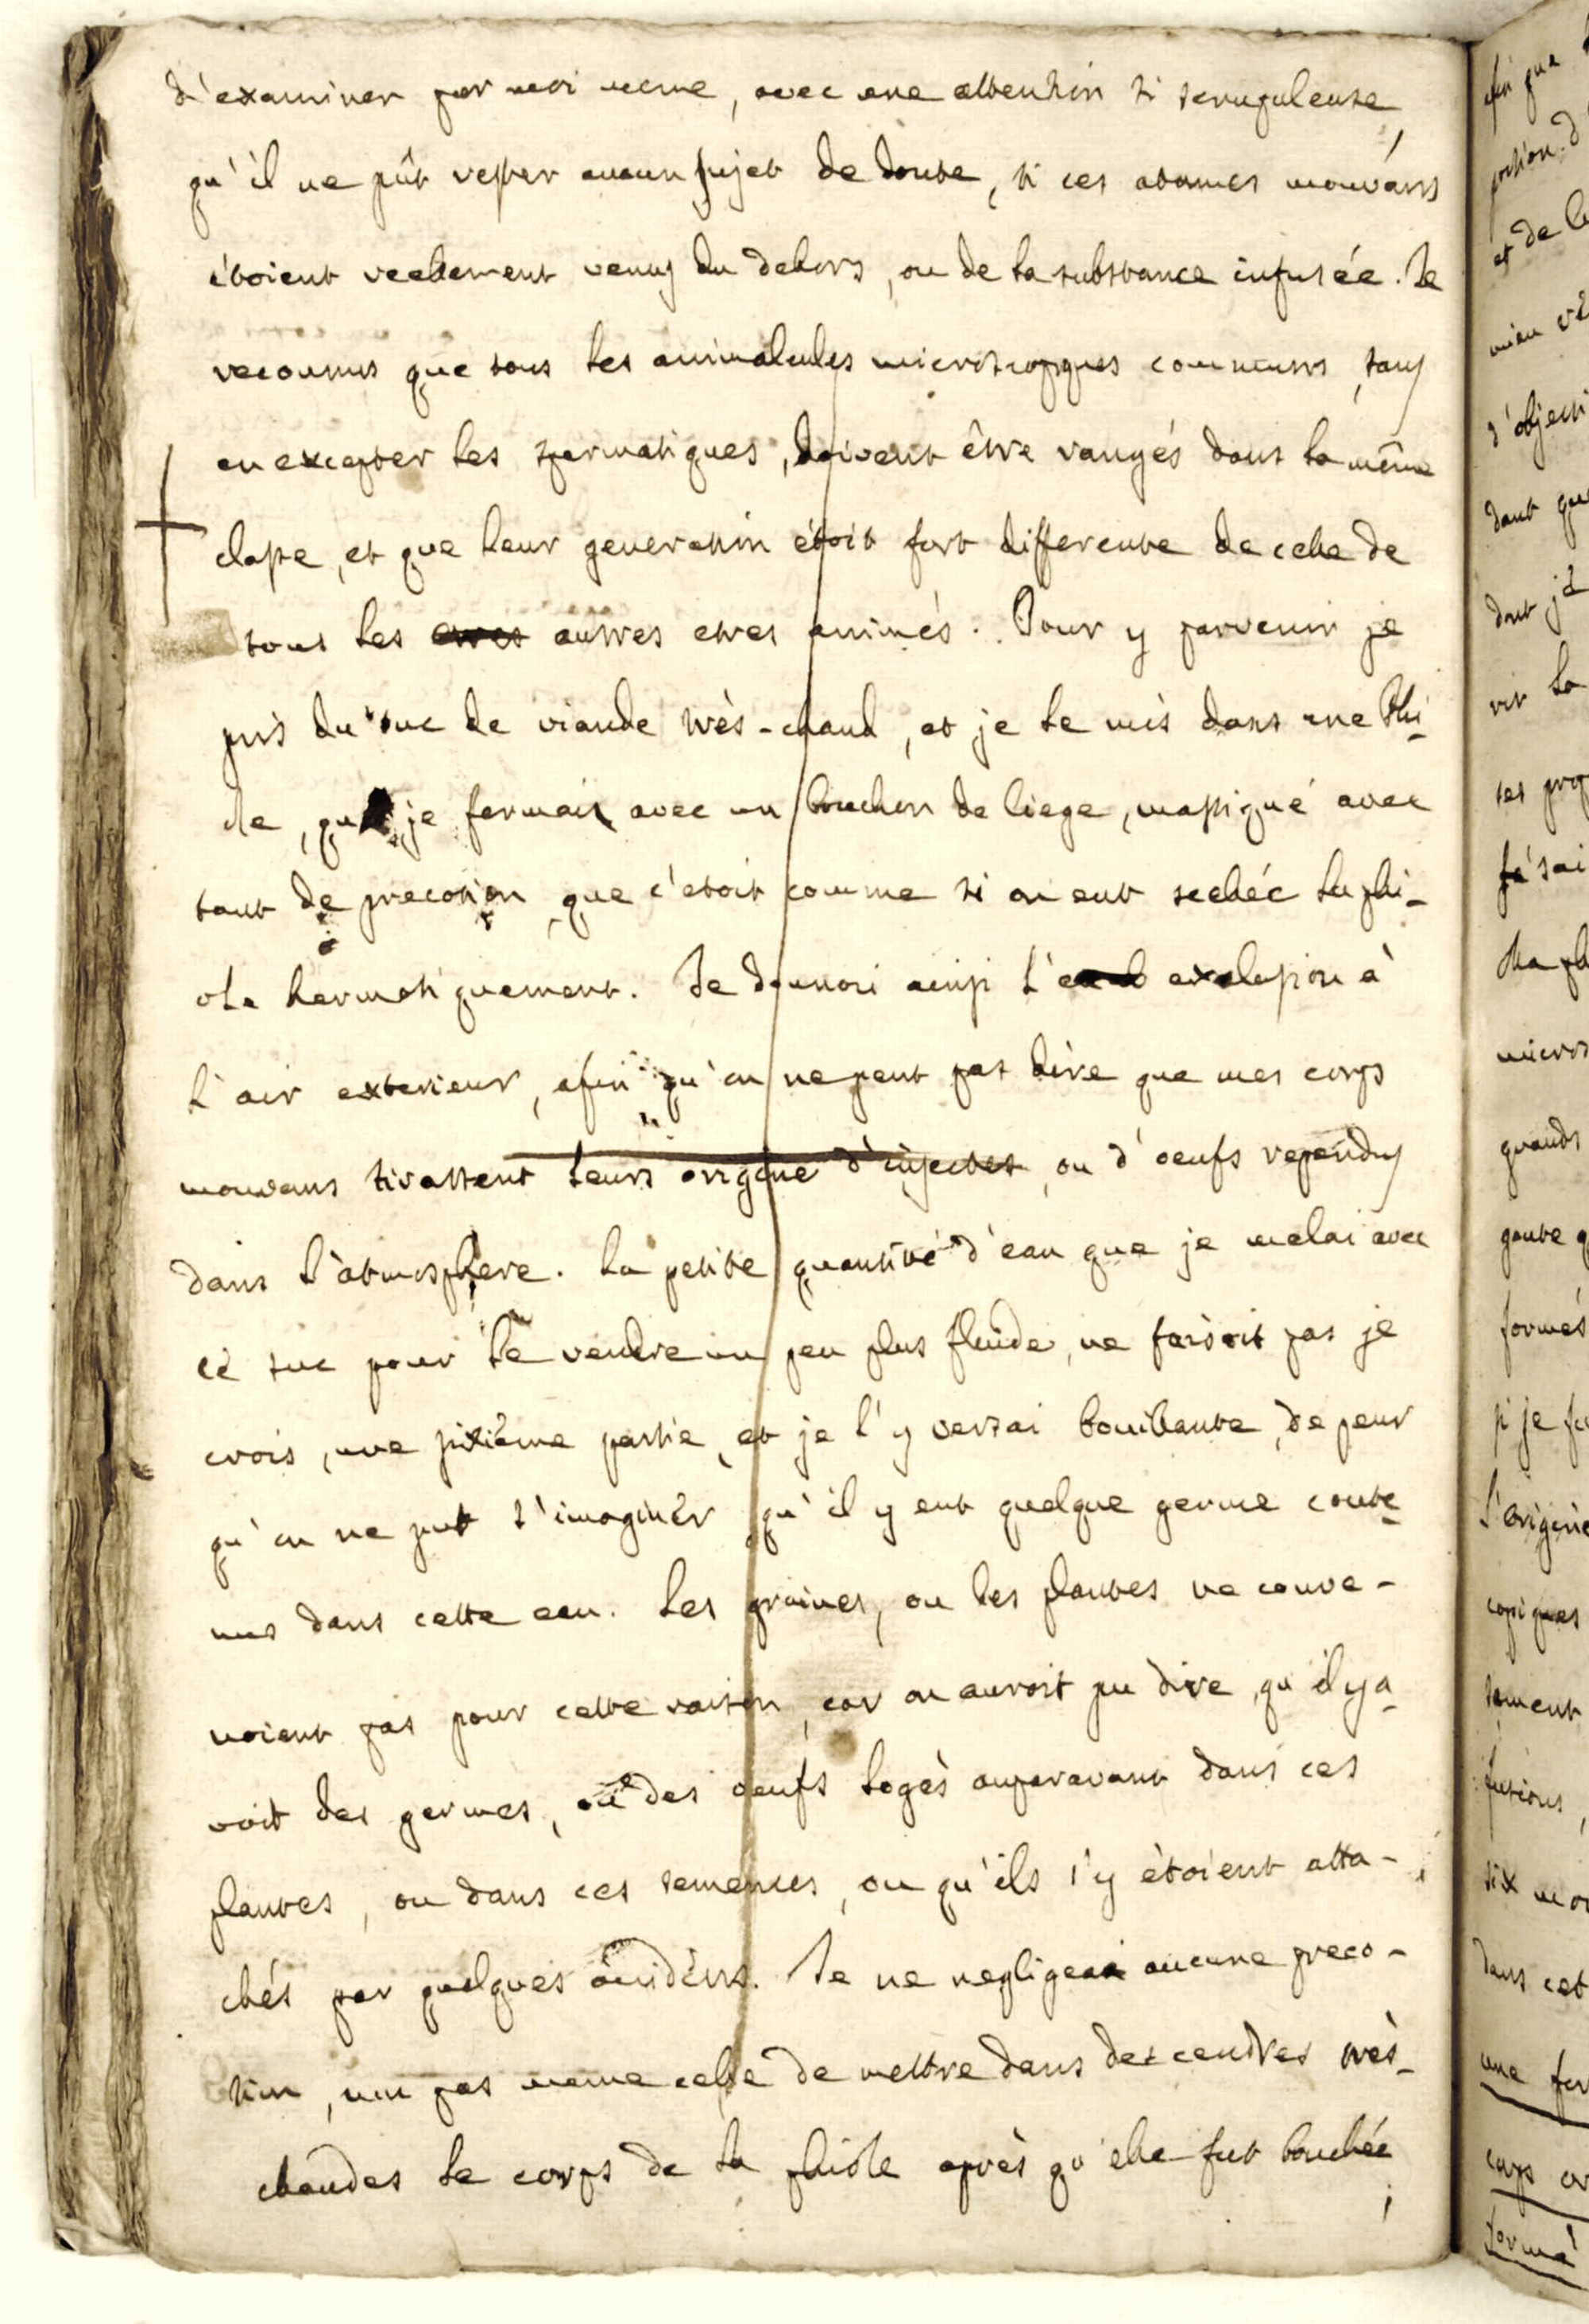 d'examiner par moi meme, avec une attention si scrupuleuse
qu'il ne pût rester aucun sujet de doute, si ces atomes mouvans
étoient reellement venus du dehors, ou de la substance infusée. Je
reconnus que tous les animalcules microscopiques connus, sans
en excepter les spermatiques, doivent être rangés dans la même
classe, et que leur generation étoit fort differente de celle de
tous les etres autres etres animés. Pour y parvenir je
pris du suc de viande très-chaud, et je le mis dans une Phi-
ole, que je fermai avec un bouchon de liege, massiqué avec
tant de precotion, que c'etoit comme si on eut scelléc la phi-
ole hermetiquement. Je donnai ainsi l' exclusion à
l'air exterieur, afin qu'on ne peut pas dire que mes corps
mouvans tirassent leurs origine d'insectes, ou d'oeufs repandus
dans l'atmosphere. La petite quantité d'eau que je melai avec
ce suc pour le rendre un peu plus fluide, ne faisoit pas je
crois, une sixième partie, et je l'y versai bouillante, de peur
qu'on ne put s'imaginer, qu'il y eut quelque germe conte-
nus dans cette eau. Les graines, ou les plantes ne conve-
noient pas pour cette raison, car on auroit pu dire, qu'il y a-
voit des germes, ou des oeufs logés auparavant dans ces
plantes, ou dans ces semences, ou qu'ils s'y étoient atta-
chés par quelques Je ne negligeai aucune preco-
tion, non pas meme celle de mettre dans des cendres très-
chaudes le corps de la phiole après qu'elle fut bouchée
et de
d'objecti
vir la
micros
grands
formés
l'origine
copiques
dans cet
une for
corps or
formé